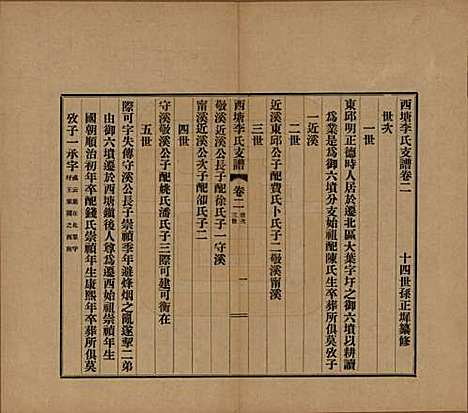 西塘李氏支譜卷二
十四世孫正墀纂修
世次
一世
東邱明正德時人居於遷北區大葉字圩之御六墳以耕讀
為業是為御六墳分支始祖配陳氏生卒葬所俱莫攷子
一近溪
二世
近溪東邱公子配費氏卜氏子二敬溪甯溪
三世
敬溪近溪公長子配徐氏子一守溪
甯溪近溪公次子配薛氏子二
西塘李氏支譜
卷二
世次
一
四世
守溪敬溪公子配姚氏潘氏子三際可建可衡在
五世
際可字失傳守溪公長子崇禎季年避烽烟之亂遂挈二弟
由御六墳遷於西塘鎮後人尊為遷西始祖崇禎年生
國朝順治初年卒配錢氏崇禎年生康熙年卒葬所俱莫
攷子一承宇